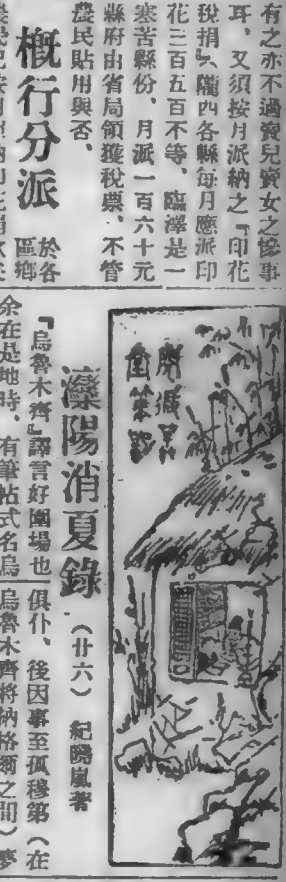 有之亦不過賣兒賣女之慘事
耳、又須按月派納之『印花
稅捐』、隴西各縣每月應派印
花三百五百不等、臨澤是一
寒苦縣份、月派一百六十元
縣府由省局領獲稅票、不管
農民貼用與否、
概行分派
於各
區鄉
灤陽消夏錄
（廿六）　紀曉嵐著
『烏魯木齊』譯言好圍場也
余在是地時、有筆帖式名烏
俱仆、後因事至孤穆第（在
烏魯木齊將納格爾之間）夢